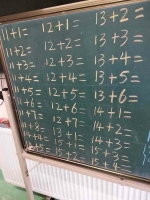 11+1= 12+1= 13+2=
11+2= 12+2= 13+3=
11+3= 12+3= 13+4=
11+4= 12+4= 13+5=
11+5= 12+5= 13+6=
11+6= 12+6= 14+1=
11+7= 12+7= 14+2=
11+8= 13+1= 14+3=
15+2= 15+3=